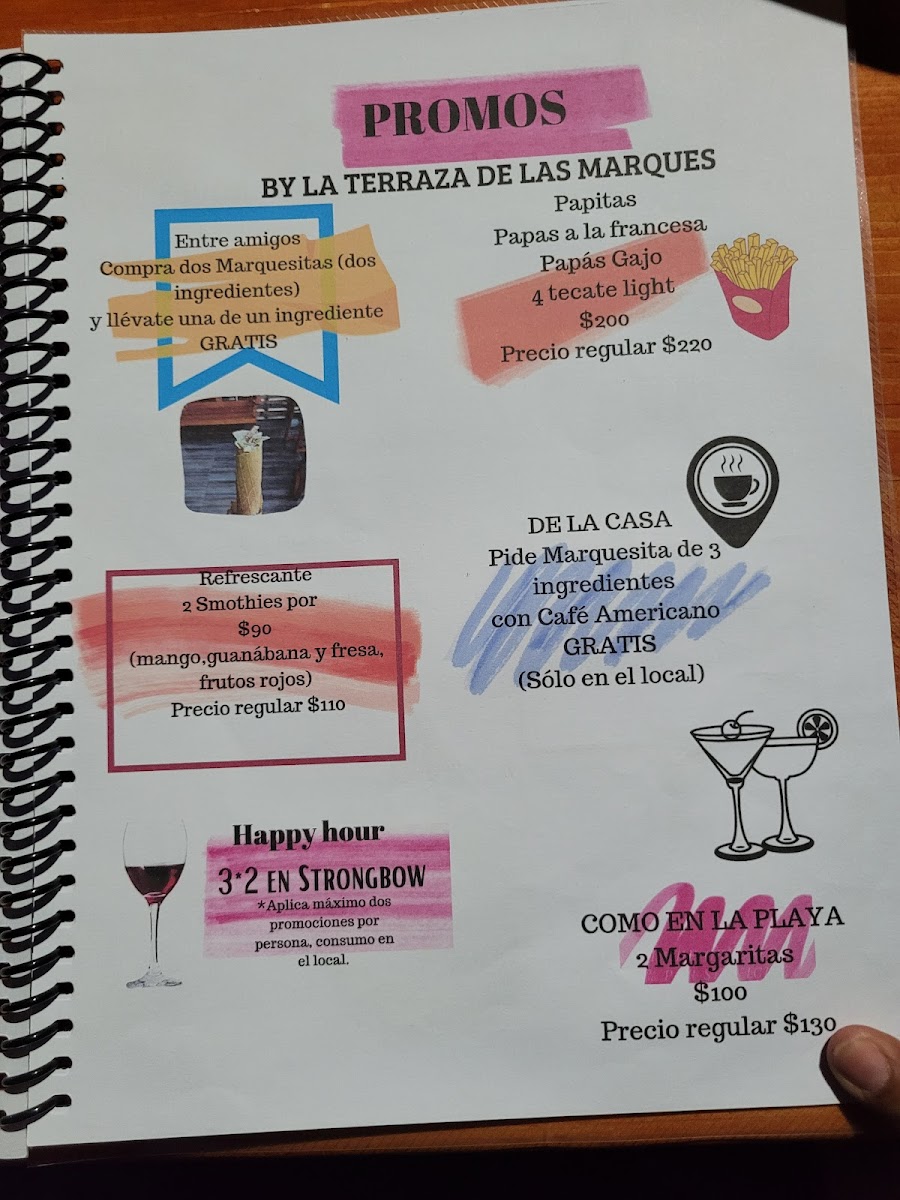 PROMOS
BY LA TERRAZA DE LAS MARQUES
Entre amigos
Compra dos Marquesitas (dos
ingredientes)
y llévate una de un ingrediente
GRATIS
Papitas
Papas a la francesa
Papás Gajo
4 tecate light
$200
Precio regular $220
DE LA CASA
Pide Marquesita de 3
ingredientes
con Café Americano
GRATIS
(Sólo en el local)
Refrescante
2 Smothies por
$90
(mango,guanábana y fresa,
frutos rojos)
Precio regular $110
Happy hour
3*2 EN STRONGBOW
*Aplica máximo dos
promociones por
persona, consumo en
el local.
COMO EN LA PLAYA
2 Margaritas
$100
Precio regular $130